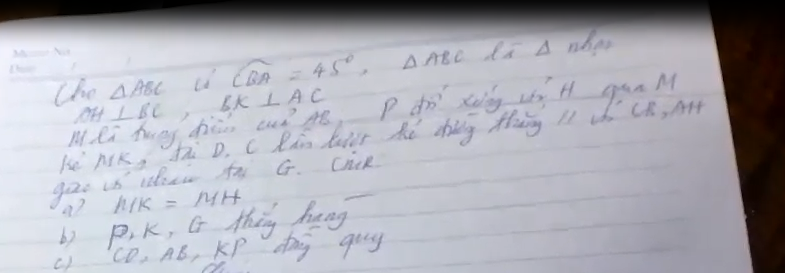 Cho △ABC có CBA = 45°, △ABC là △ nhọn
AH ⊥ BC, BK ⊥ AC
M là trung điểm của AB. P đối xứng với H qua M
Kẻ MK, tại D, C lần lượt kẻ đường thẳng // với CB, AH
giao với nhau tại G. CMR
a) MK = MH
b) P, K, G thẳng hàng
c) CD, AB, KP đồng quy